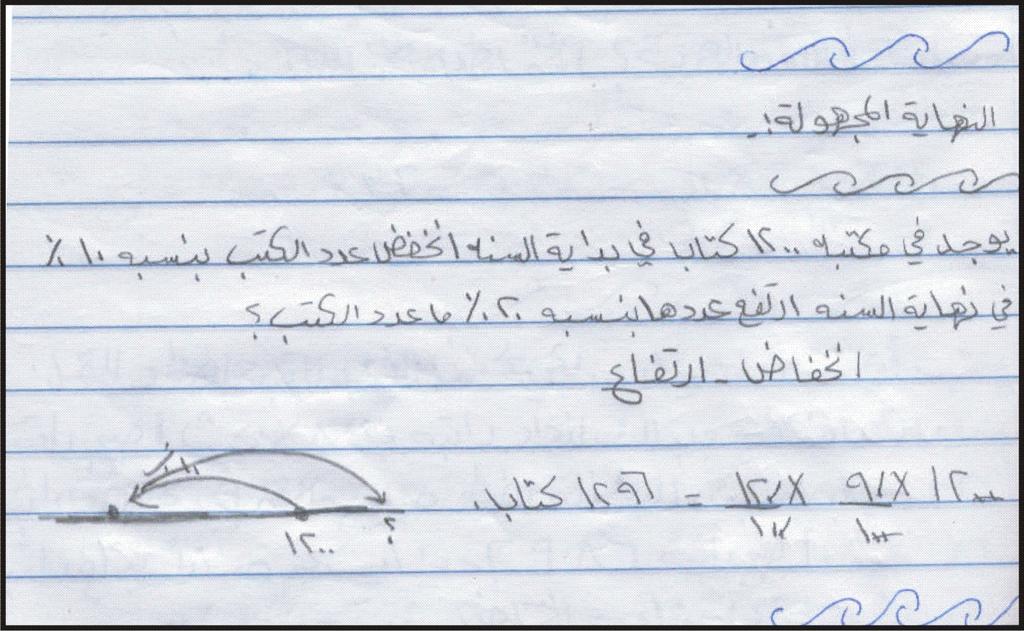 النهاية المجهولة:-
يوجد في مكتبه ١٢٠٠ كتابا في بداية السنه انخفض عدد الكتب بنسبه ١٠٪
في نهاية السنه ارتفع عددها بنسبه ٢٠٪ ما عدد الكتب؟
انخفاض - ارتفاع
١٢٠٠ × ٩٠/١٠٠ × ١٢٠/١٠٠ = ١٢٩٦ كتابا.
١٠٪
١٢٠٠ ؟